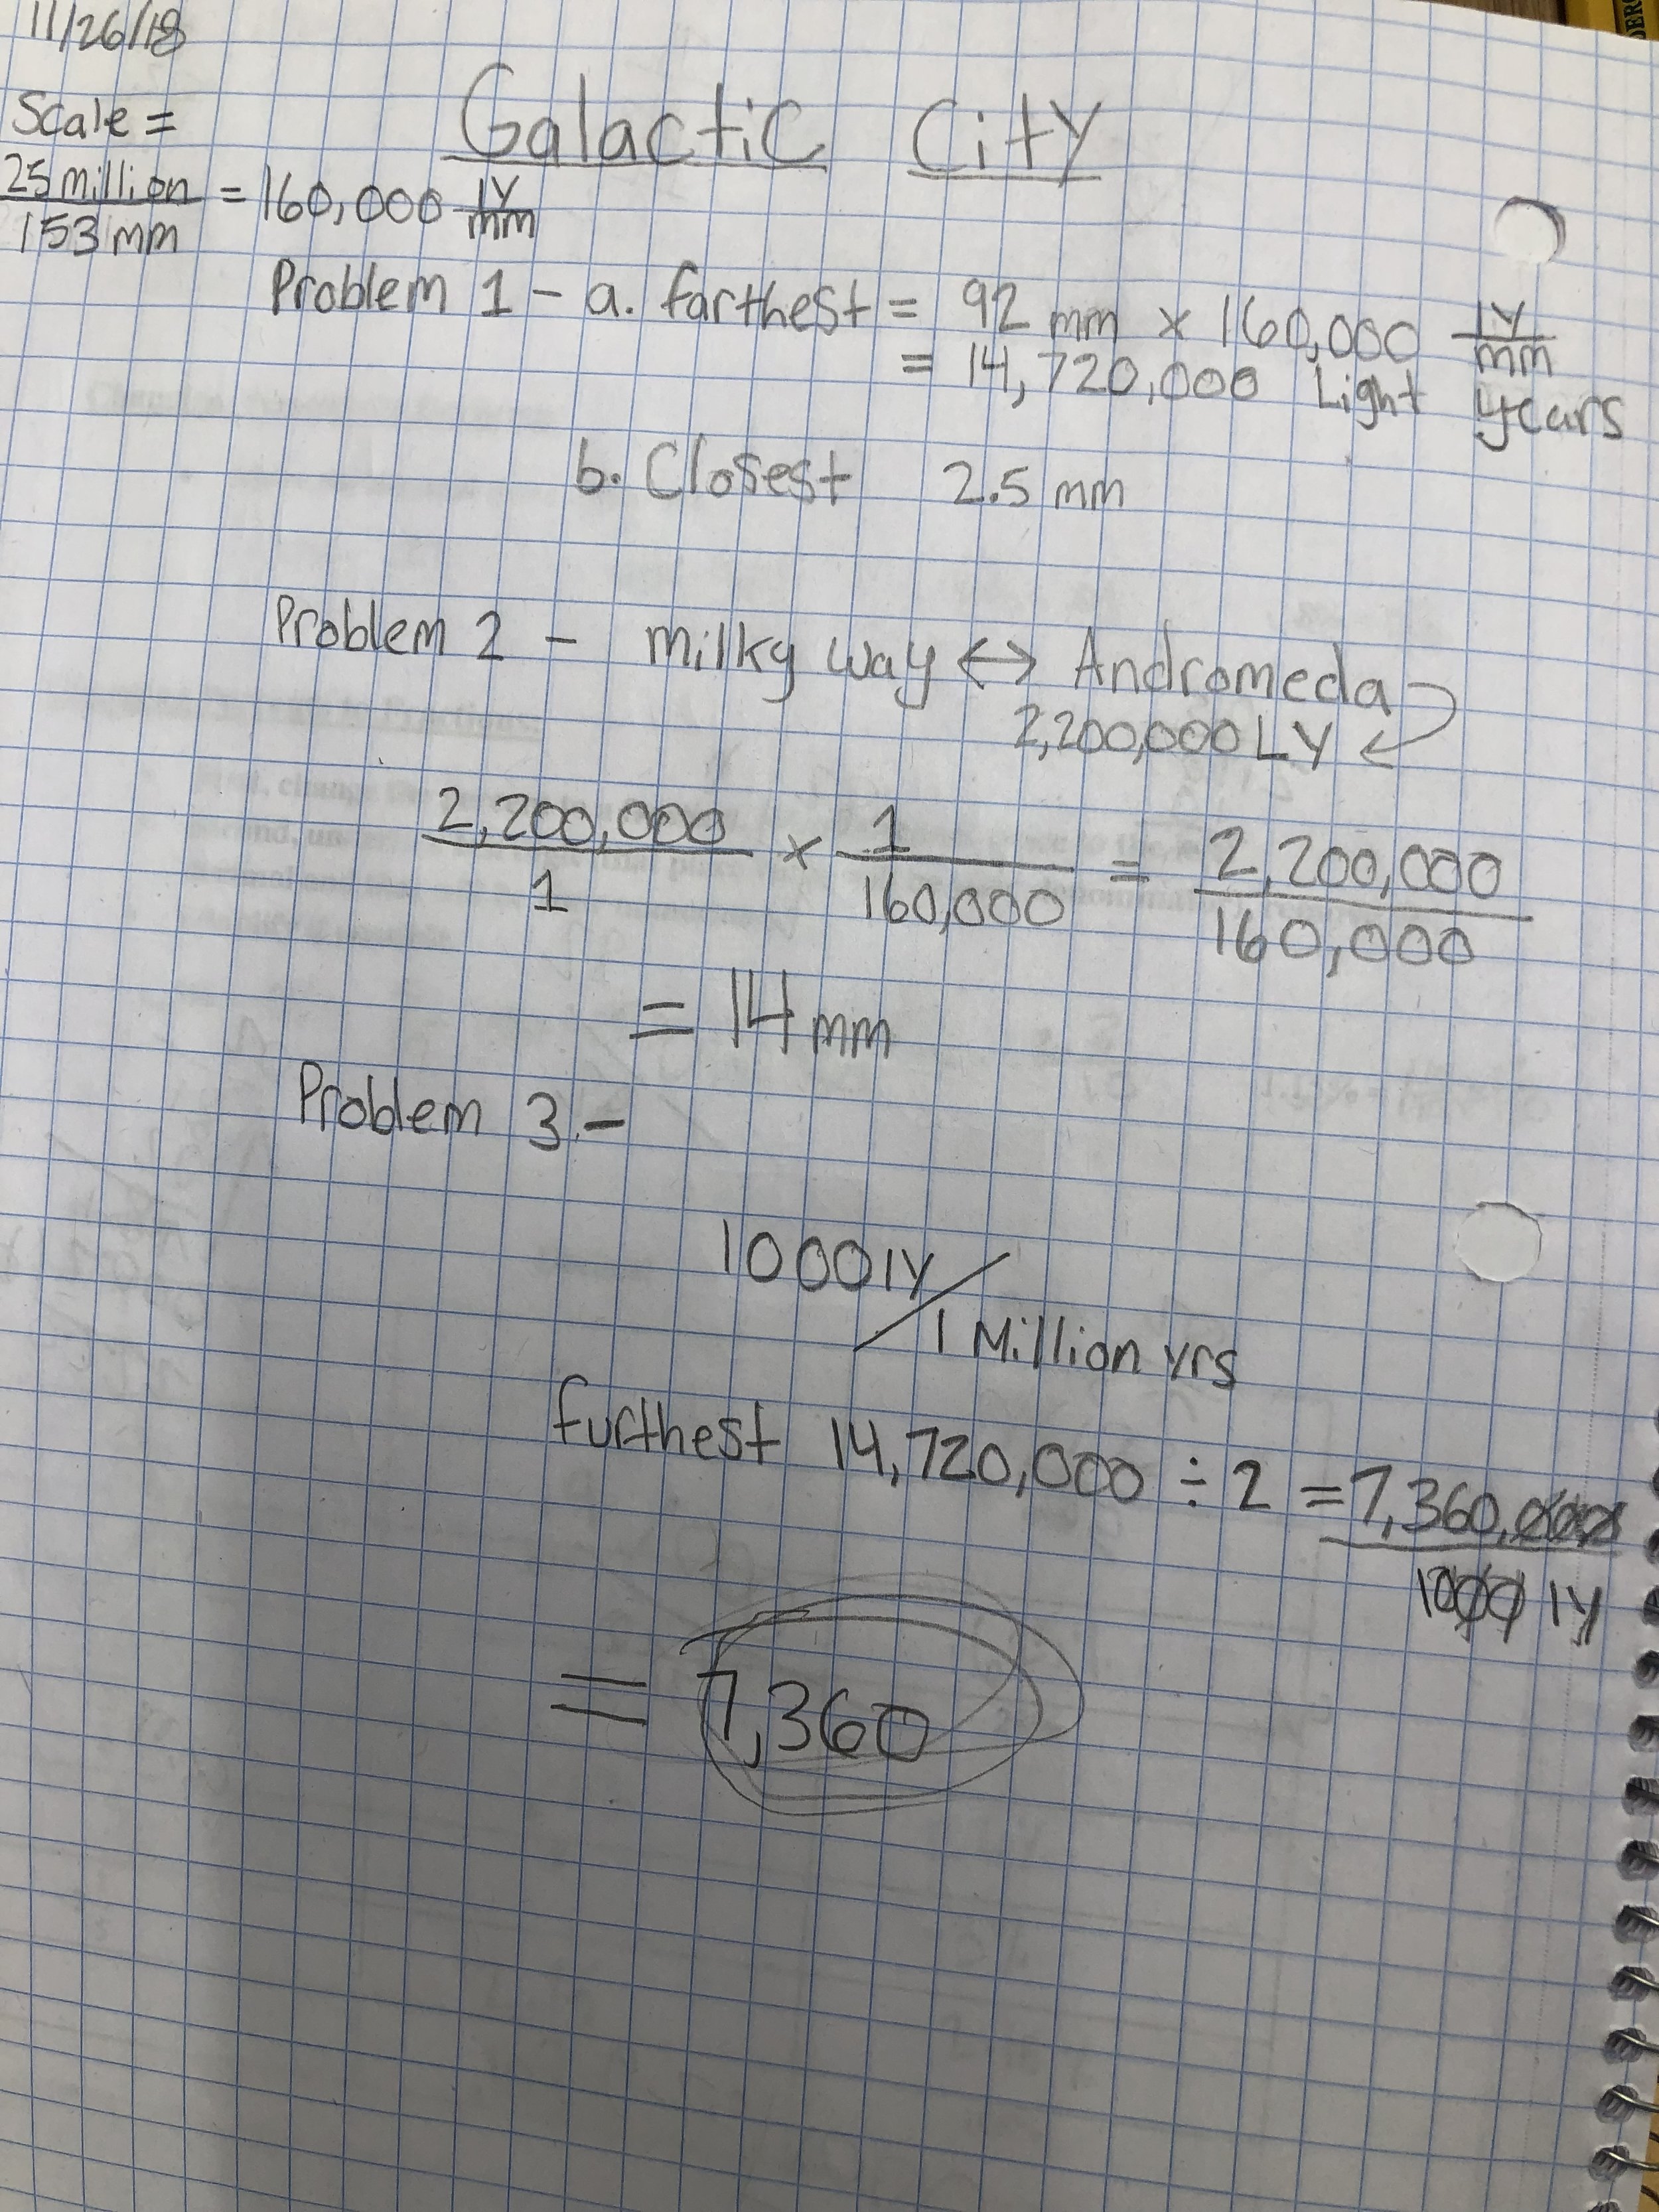 11/26/18
Galactic City
Scale =
25 million / 153 mm = 160,000 ly/mm
Problem 1 - a. farthest = 92 mm x 160,000 ly/mm
= 14,720,000 Light years
b. Closest 2.5 mm
Problem 2 - milky way ↔ Andromeda
2,200,000 LY
2,200,000 / 1 x 1 / 160,000 = 2,200,000 / 160,000
= 14 mm
Problem 3 -
1000 ly / 1 Million yrs
furthest 14,720,000 ÷ 2 = 7,360,000
1000 ly
= 7,360